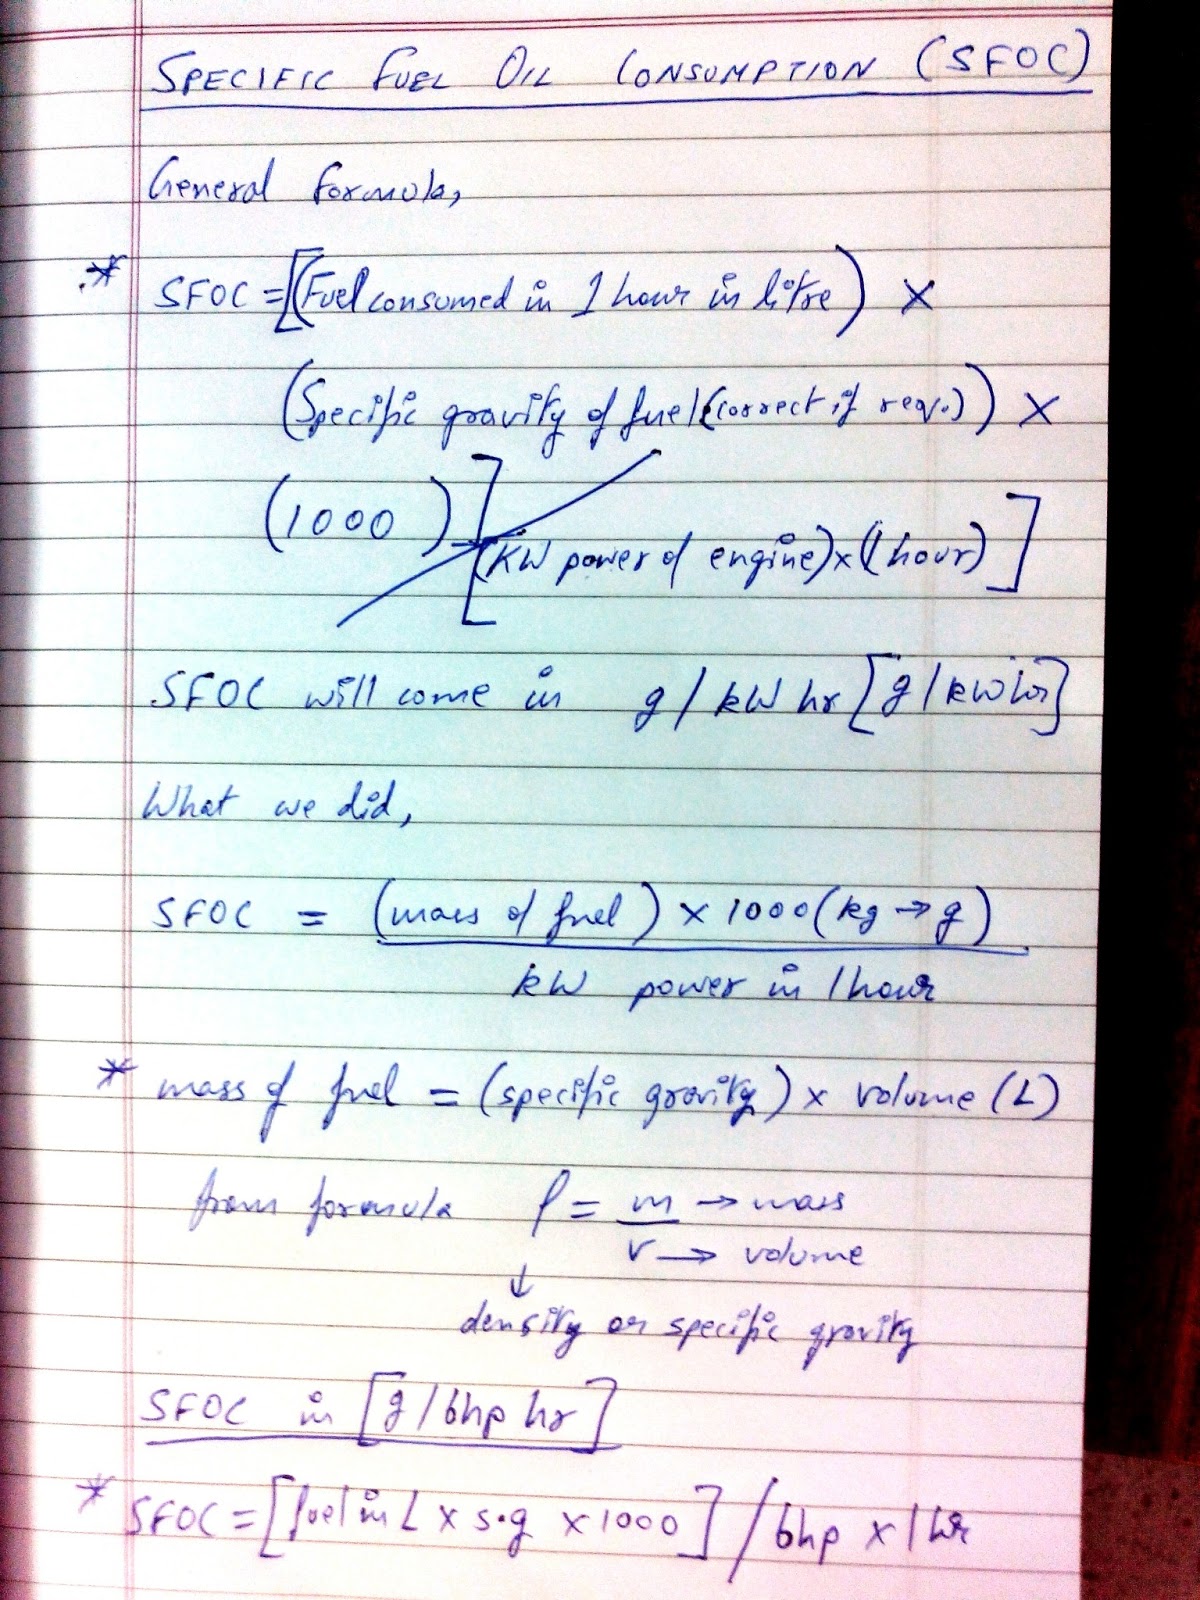 SPECIFIC FUEL OIL CONSUMPTION (SFOC)
General formula,
* SFOC = [(Fuel consumed in 1 hour in litre) ×
(Specific gravity of fuel (correct if req.)) ×
(1000)] / [(KW power of engine) × (1 hour)]
SFOC will come in g/kW hr [g/kWhr]
What we did,
SFOC = (mass of fuel) × 1000 (kg → g)
kW power in 1 hour
* mass of fuel = (specific gravity) × volume (L)
from formula ρ = m → mass
v → volume
↓
density or specific gravity
SFOC in [g/bhp hr]
* SFOC = [fuel in L × s.g × 1000] / bhp × 1 hr